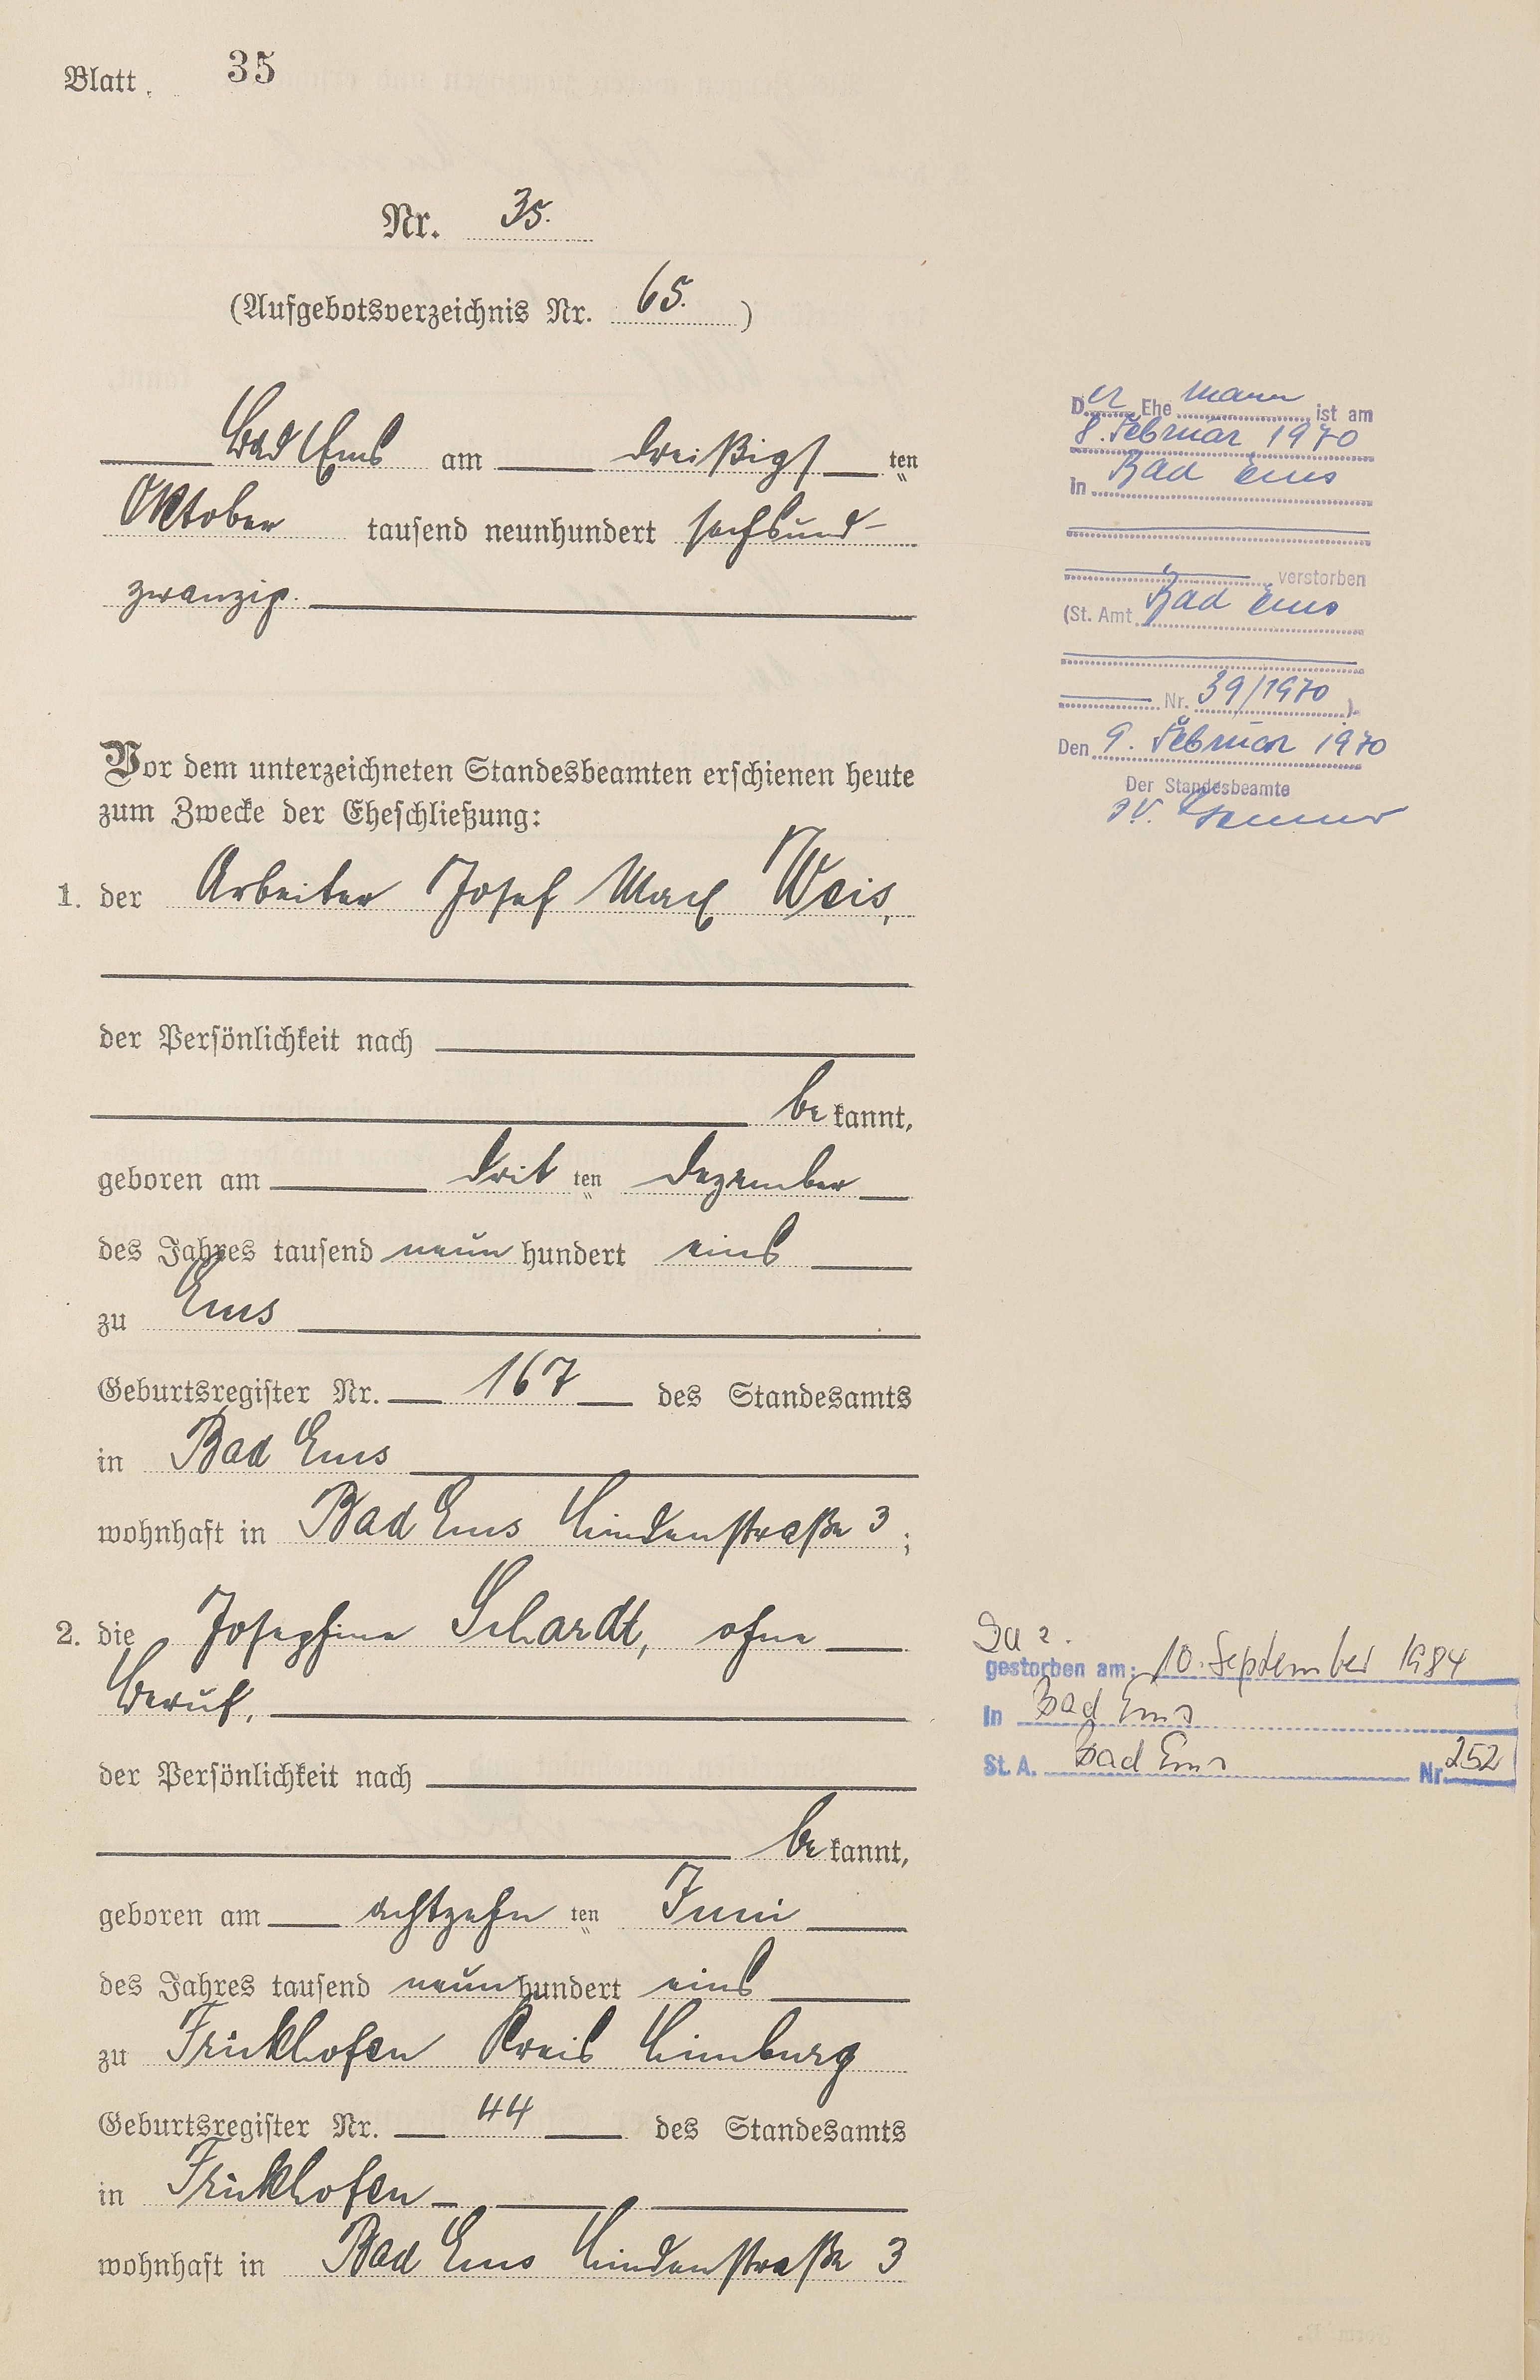 Blatt 35
Nr. 35.
(Aufgebotsverzeichnis Nr. 65.)
Bad Ems am dreißigsten
Oktober tausend neunhundert sechsund-
zwanzig.
Vor dem unterzeichneten Standesbeamten erschienen heute
zum Zwecke der Eheschließung:
1. der Arbeiter Josef Marx Weis,
der Persönlichkeit nach
bekannt,
geboren am dritten Dezember
des Jahres tausend neunhundert eins
zu Ems
Geburtsregister Nr. 167 des Standesamts
in Bad Ems
wohnhaft in Bad Ems Lindenstraße 3;
2. die Josephine Schardt, ohne
Beruf,
der Persönlichkeit nach
bekannt,
geboren am achtzehnten Juni
des Jahres tausend neunhundert eins
zu Frickhofen Kreis Limburg
Geburtsregister Nr. 44 des Standesamts
in Frickhofen
wohnhaft in Bad Ems Lindenstraße 3
Der Ehemann ist am
8. Februar 1970
in Bad Ems
verstorben
(St. Amt Bad Ems
Nr. 39/1970).
Den 9. Februar 1970
Der Standesbeamte
I.V.
Zu 2.
gestorben am: 10. September 1984
In Bad Ems
St. A. Bad Ems Nr. 252